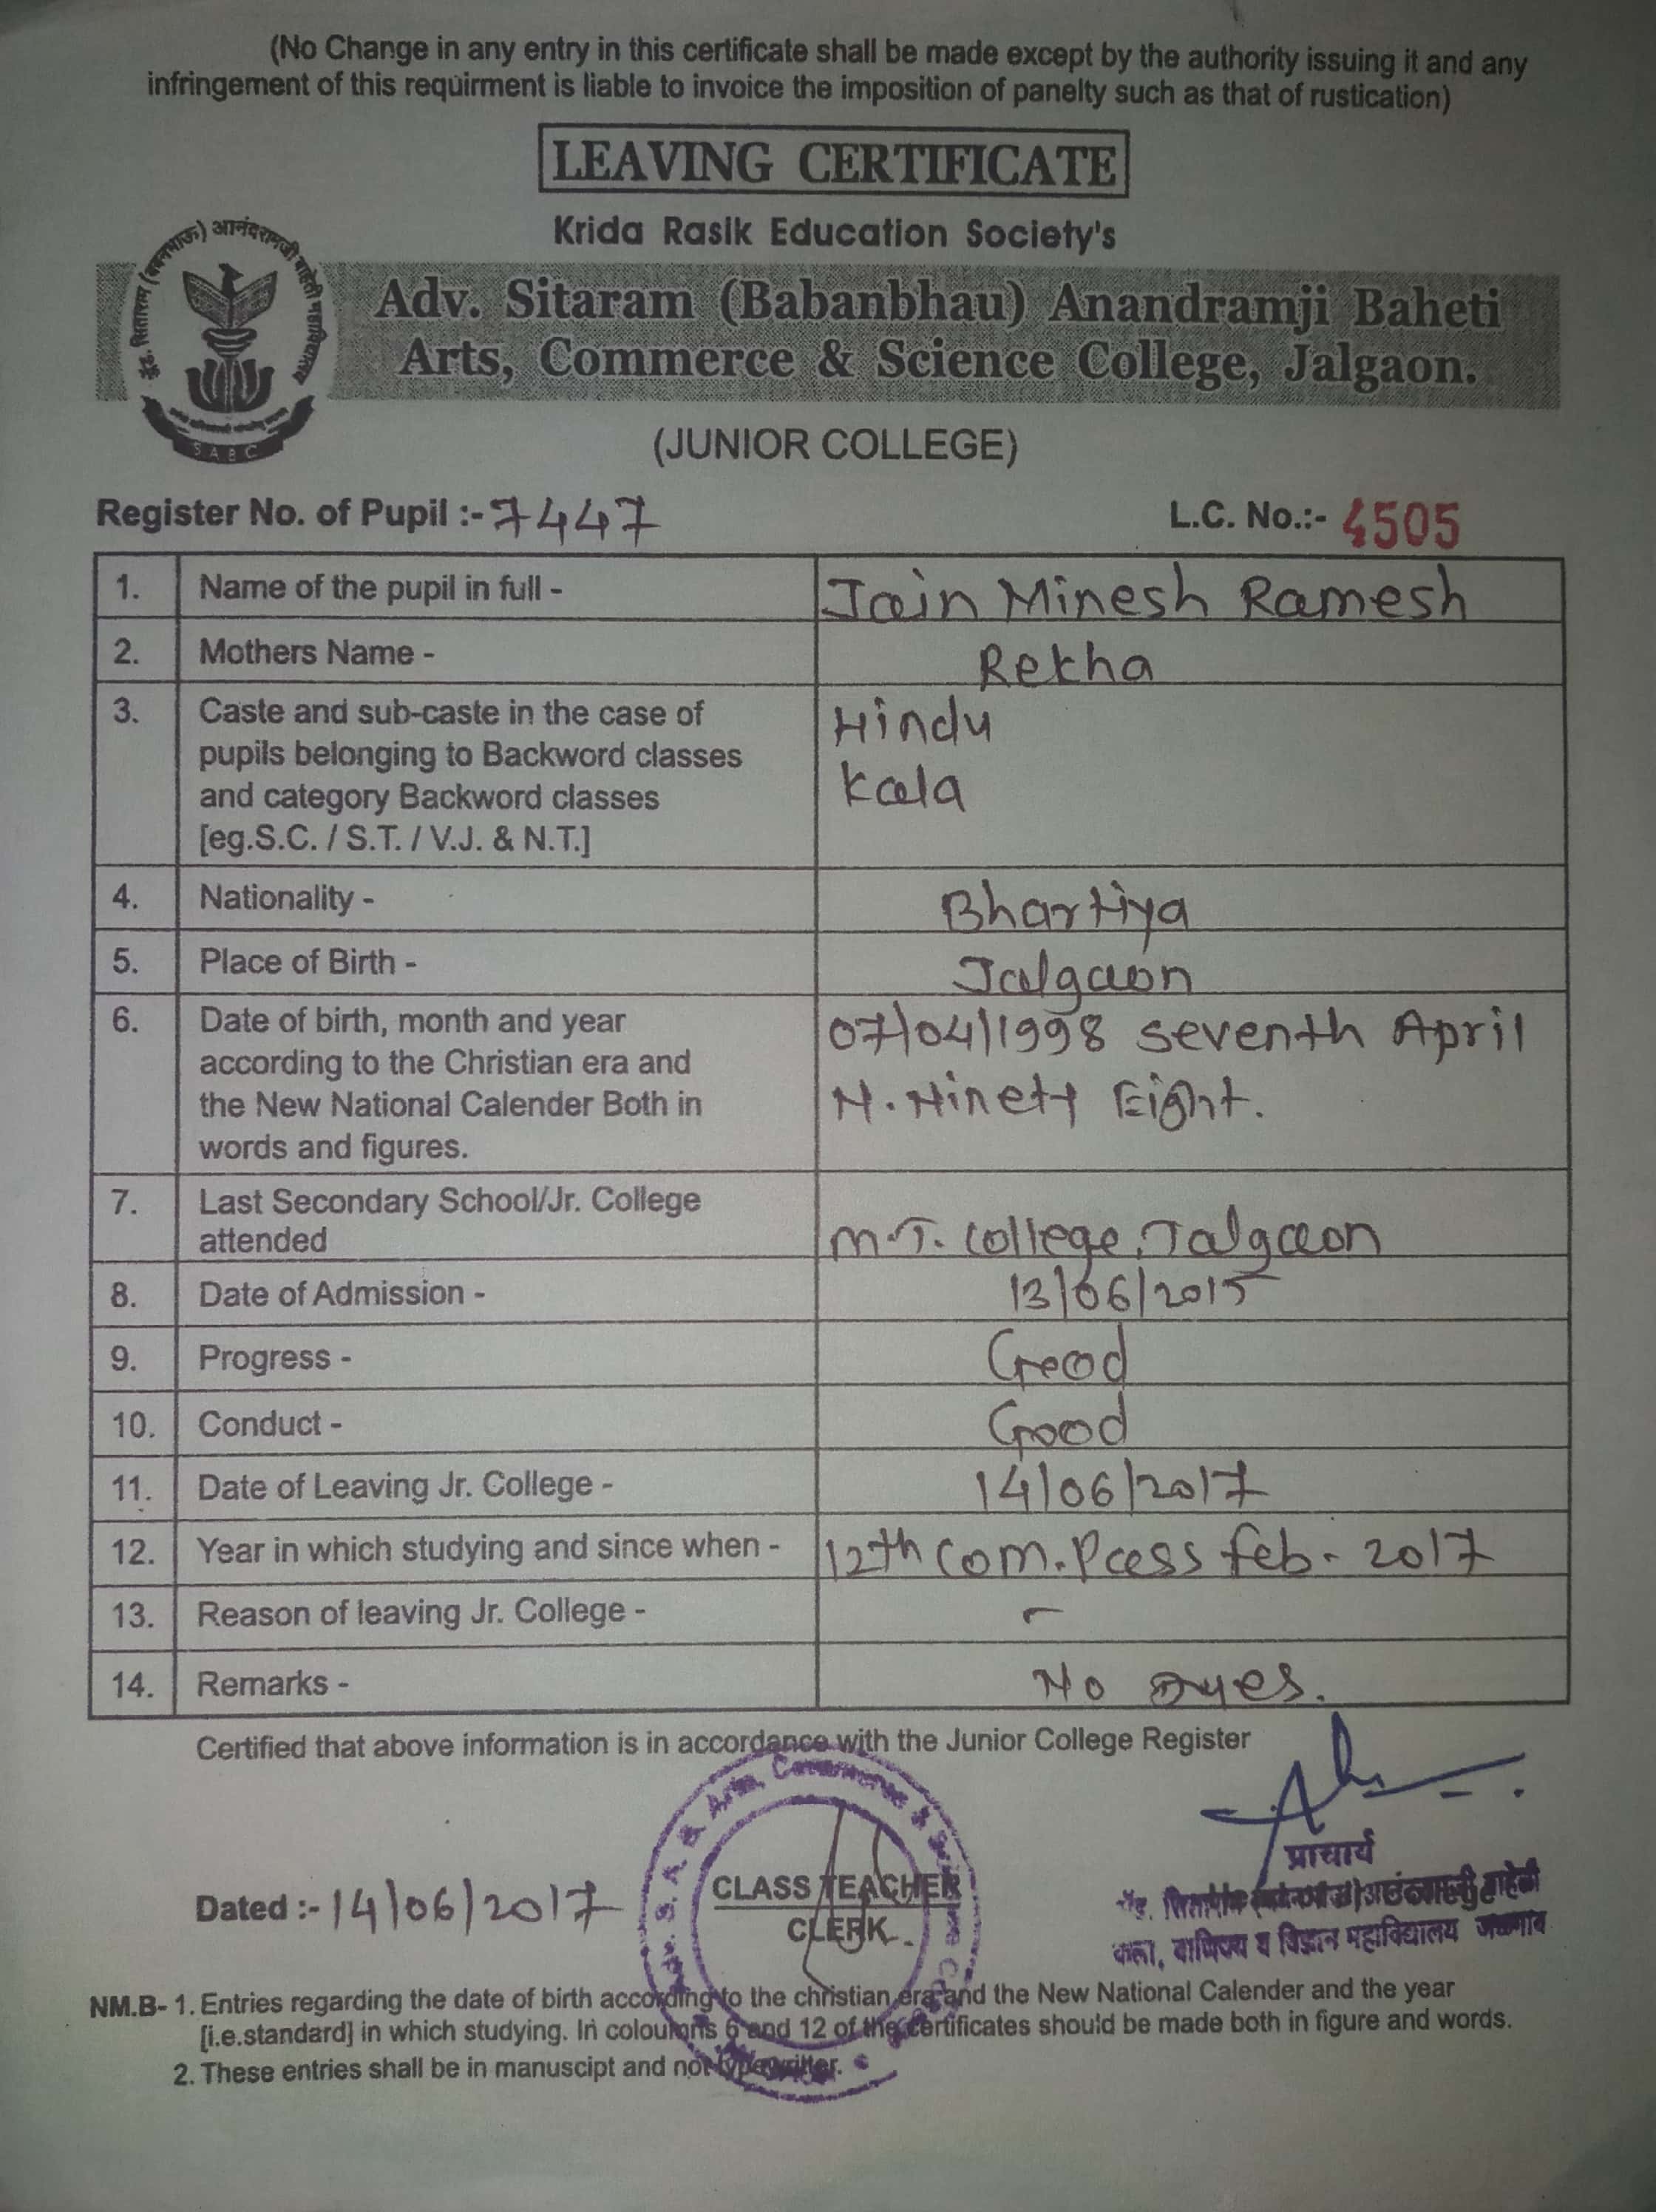 (No Change in any entry in this certificate shall be made except by the authority issuing it and any
infringement of this requirment is liable to invoice the imposition of panelty such as that of rustication)
LEAVING CERTIFICATE
Krida Rasik Education Society's
Adv. Sitaram (Babanbhau) Anandramji Baheti
Arts, Commerce & Science College, Jalgaon.
ॲड. सिताराम (बबनभाऊ) आनंदरामजी बाहेती महाविद्यालय
SABC
(JUNIOR COLLEGE)
Register No. of Pupil :- 7447 L.C. No.:- 4505
1. Name of the pupil in full - Jain Minesh Ramesh
2. Mothers Name - Rekha
3. Caste and sub-caste in the case of Hindu
pupils belonging to Backword classes Kala
and category Backword classes
[eg.S.C. / S.T. / V.J. & N.T.]
4. Nationality - Bhartiya
5. Place of Birth - Jalgaon
6. Date of birth, month and year 07/04/1998 seventh April
according to the Christian era and
the New National Calender Both in N. Ninety Eight.
words and figures.
7. Last Secondary School/Jr. College
attended M.J. College, Jalgaon
8. Date of Admission - 13/06/2015
9. Progress - Good
10. Conduct - Good
11. Date of Leaving Jr. College - 14/06/2017
12. Year in which studying and since when - 12th Com. Pass feb - 2017
13. Reason of leaving Jr. College - -
14. Remarks - No Dues.
Certified that above information is in accordance with the Junior College Register
S. A. B. Arts, Commerce &
प्राचार्य
CLASS TEACHER
Dated :- 14/06/2017
CLERK
कला, वाणिज्य व विज्ञान महाविद्यालय जळगाव
NM.B- 1. Entries regarding the date of birth according to the christian era and the New National Calender and the year
[i.e.standard] in which studying. In coloumns 6 and 12 of the certificates should be made both in figure and words.
2. These entries shall be in manuscipt and not typewriter.